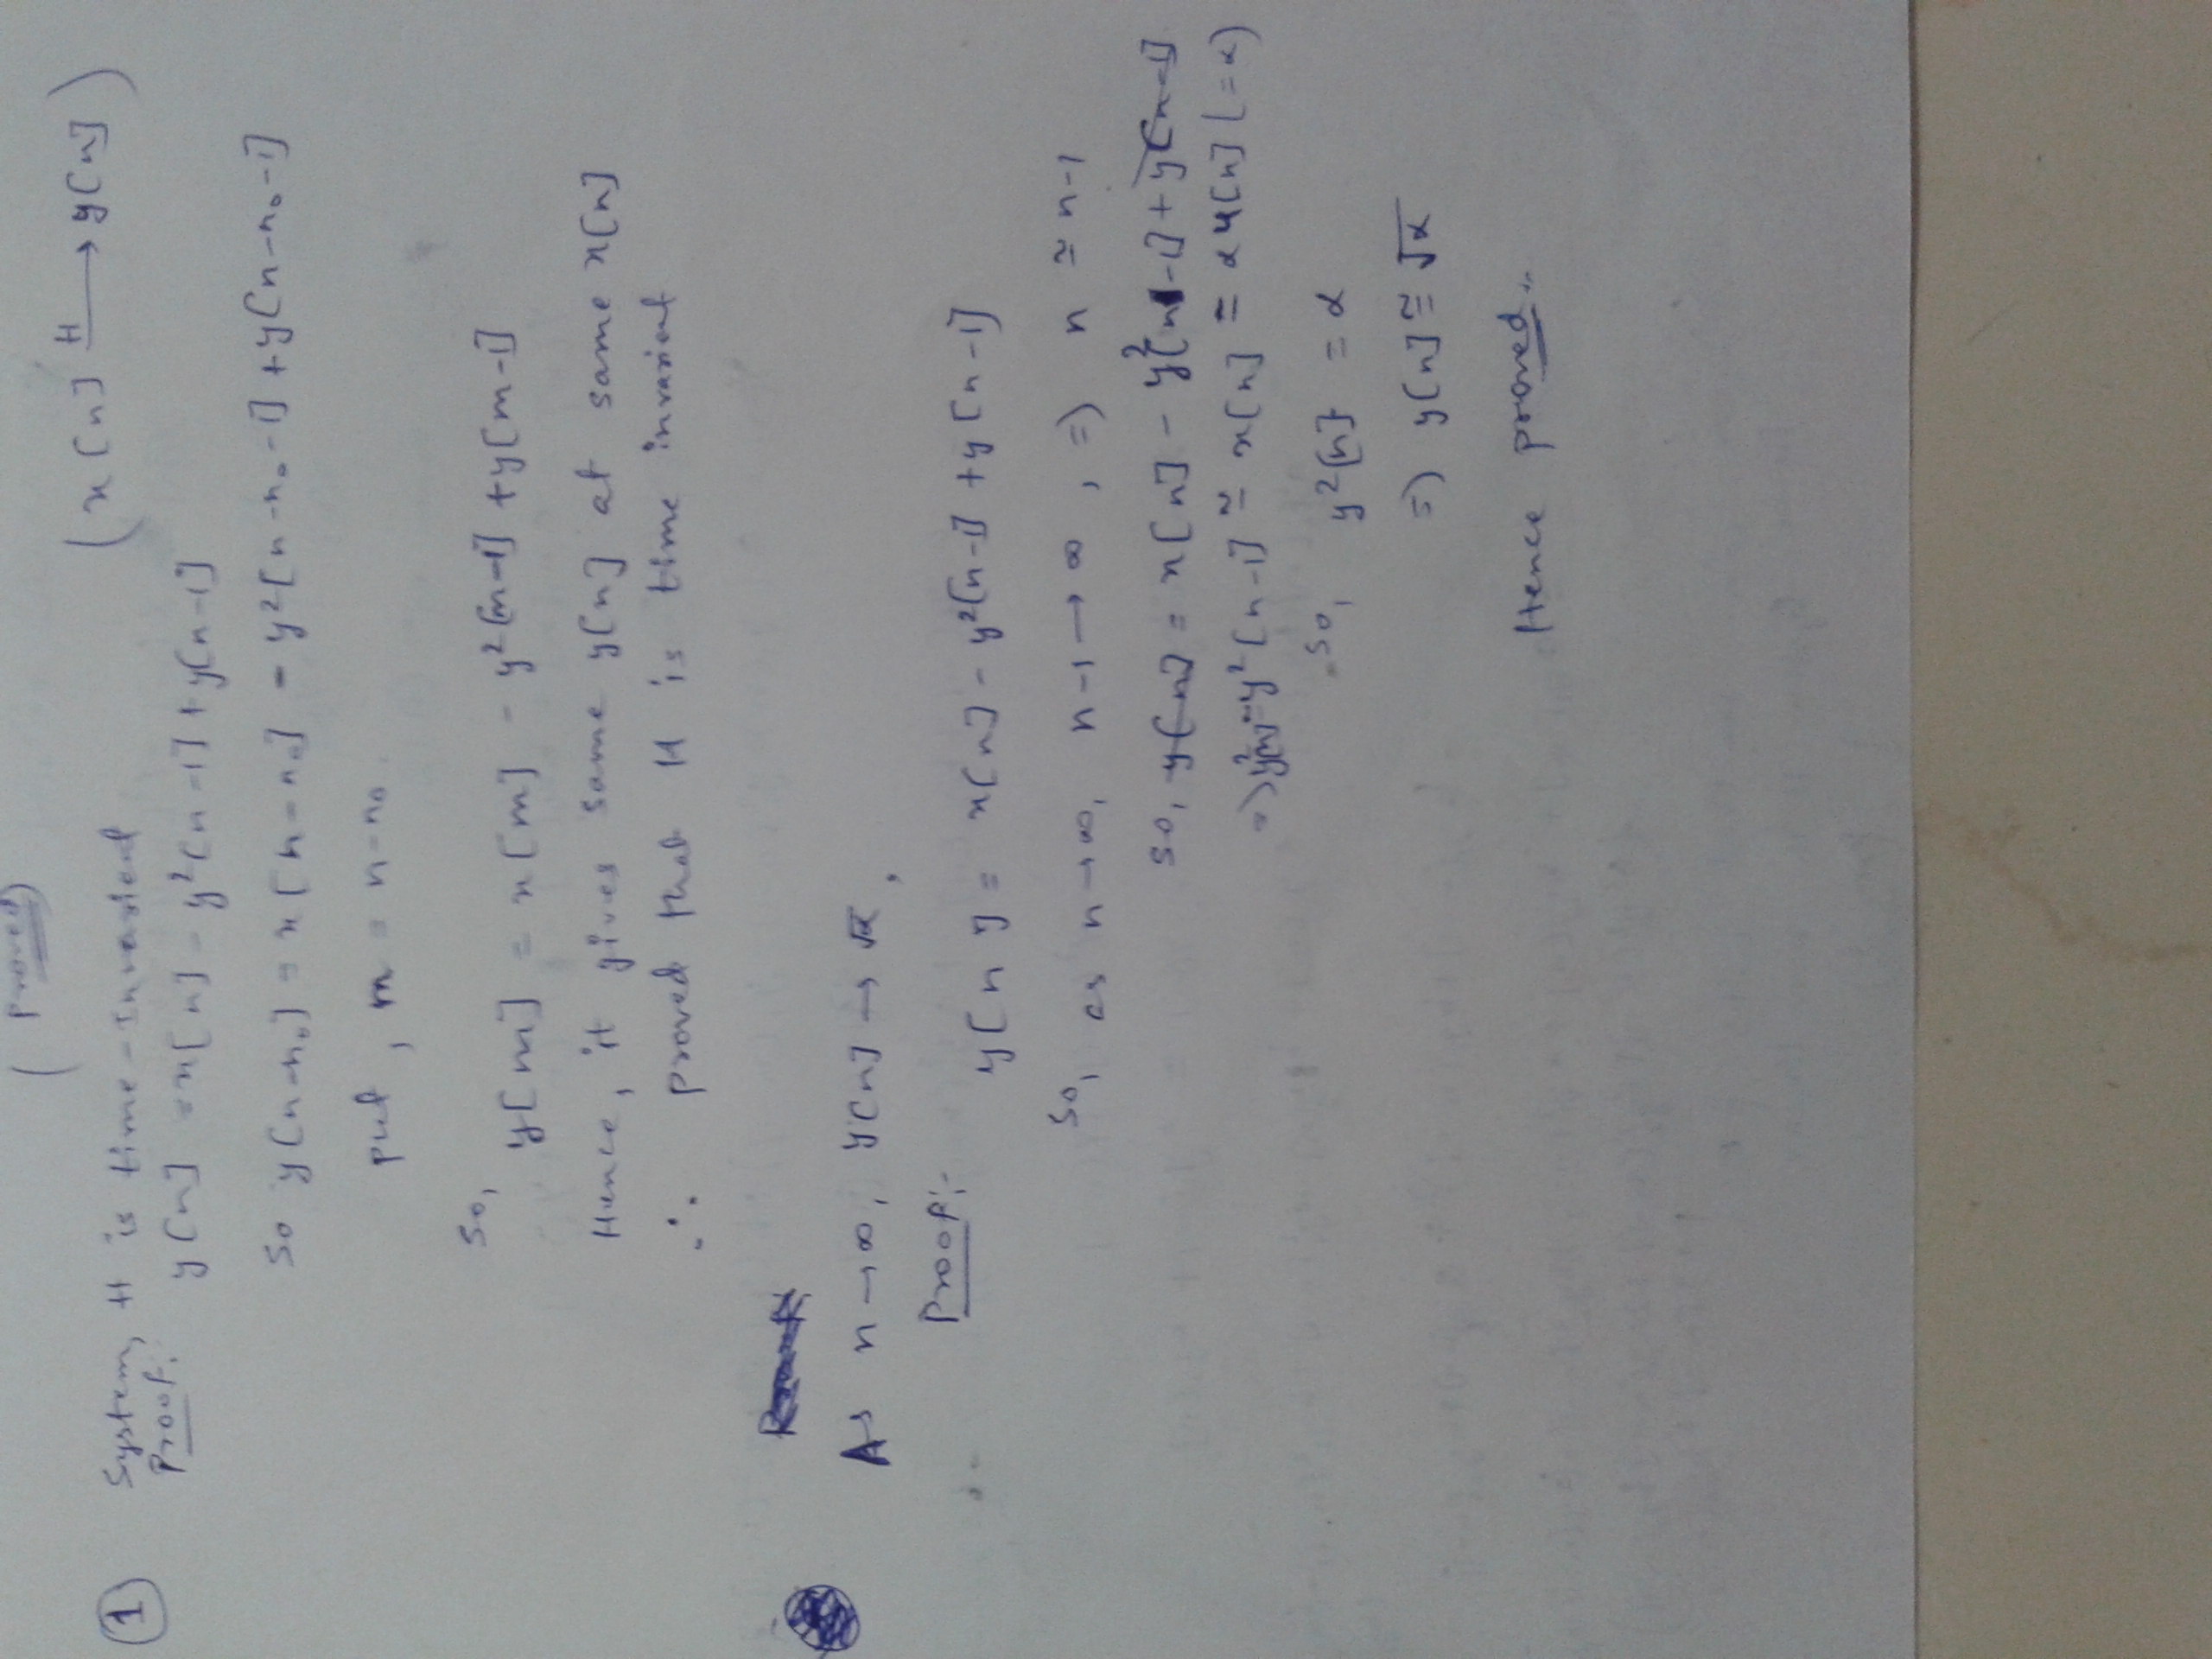 ( Proved)
(x[n] H→ y[n])
① System, H is time-invarient
Proof:
y[n] = x[n] - y²[n-1] + y[n-1]
So y[n-n₀] = x[n-n₀] - y²[n-n₀-1] + y[n-n₀-1]
put, m = n-n₀.
So,
y[m] = x[m] - y²[m-1] + y[m-1]
Hence, it gives same y[n] at same x[n]
∴ proved that H is time invarient
As n→∞, y[n] → √α.
Proof:-
y[n] = x[n] - y²[n-1] + y[n-1]
So, as n→∞, n-1→∞, ⇒ n ≅ n-1
so, y[n] = x[n] - y²[n-1] + y[n-1]
⇒ y²[n] ≅ y²[n-1] ≅ x[n] = α u[n] (=α)
So, y²[n] = α
⇒ y[n] ≅ √α
Hence proved..